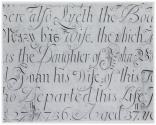 Here also Lyeth the Bod
Mary his Wife, the which
as the Daughter of John
Joan his Wife of this
ho Departed this Life
1736 Aged 37